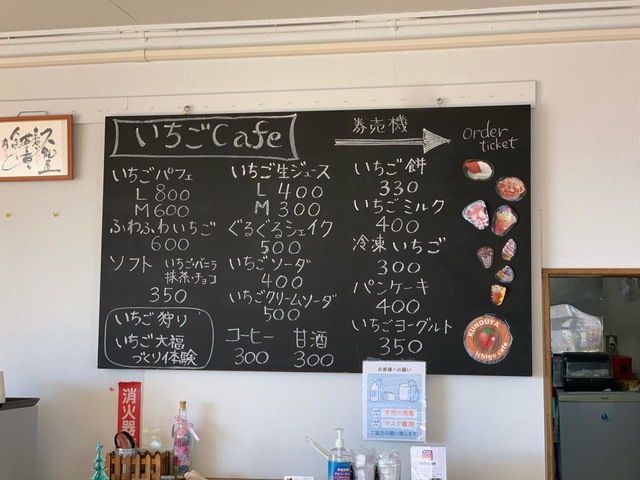 いちごCafe
券売機
order ticket
いちごパフェ
L 800
M 600
ふわふわいちご
600
ソフト いちご・バニラ
抹茶・チョコ
350
いちご狩り
いちご大福
づくり体験
いちご生ジュース
L 400
M 300
ぐるぐるシェイク
500
いちごソーダ
400
いちごクリームソーダ
500
コーヒー 甘酒
300 300
いちご餅
330
いちごミルク
400
冷凍いちご
300
パンケーキ
400
いちごヨーグルト
350
KUNOUYA
ichigo cafe
消火器
お客様へお願い
手指の消毒
マスク着用
ご協力お願い致します